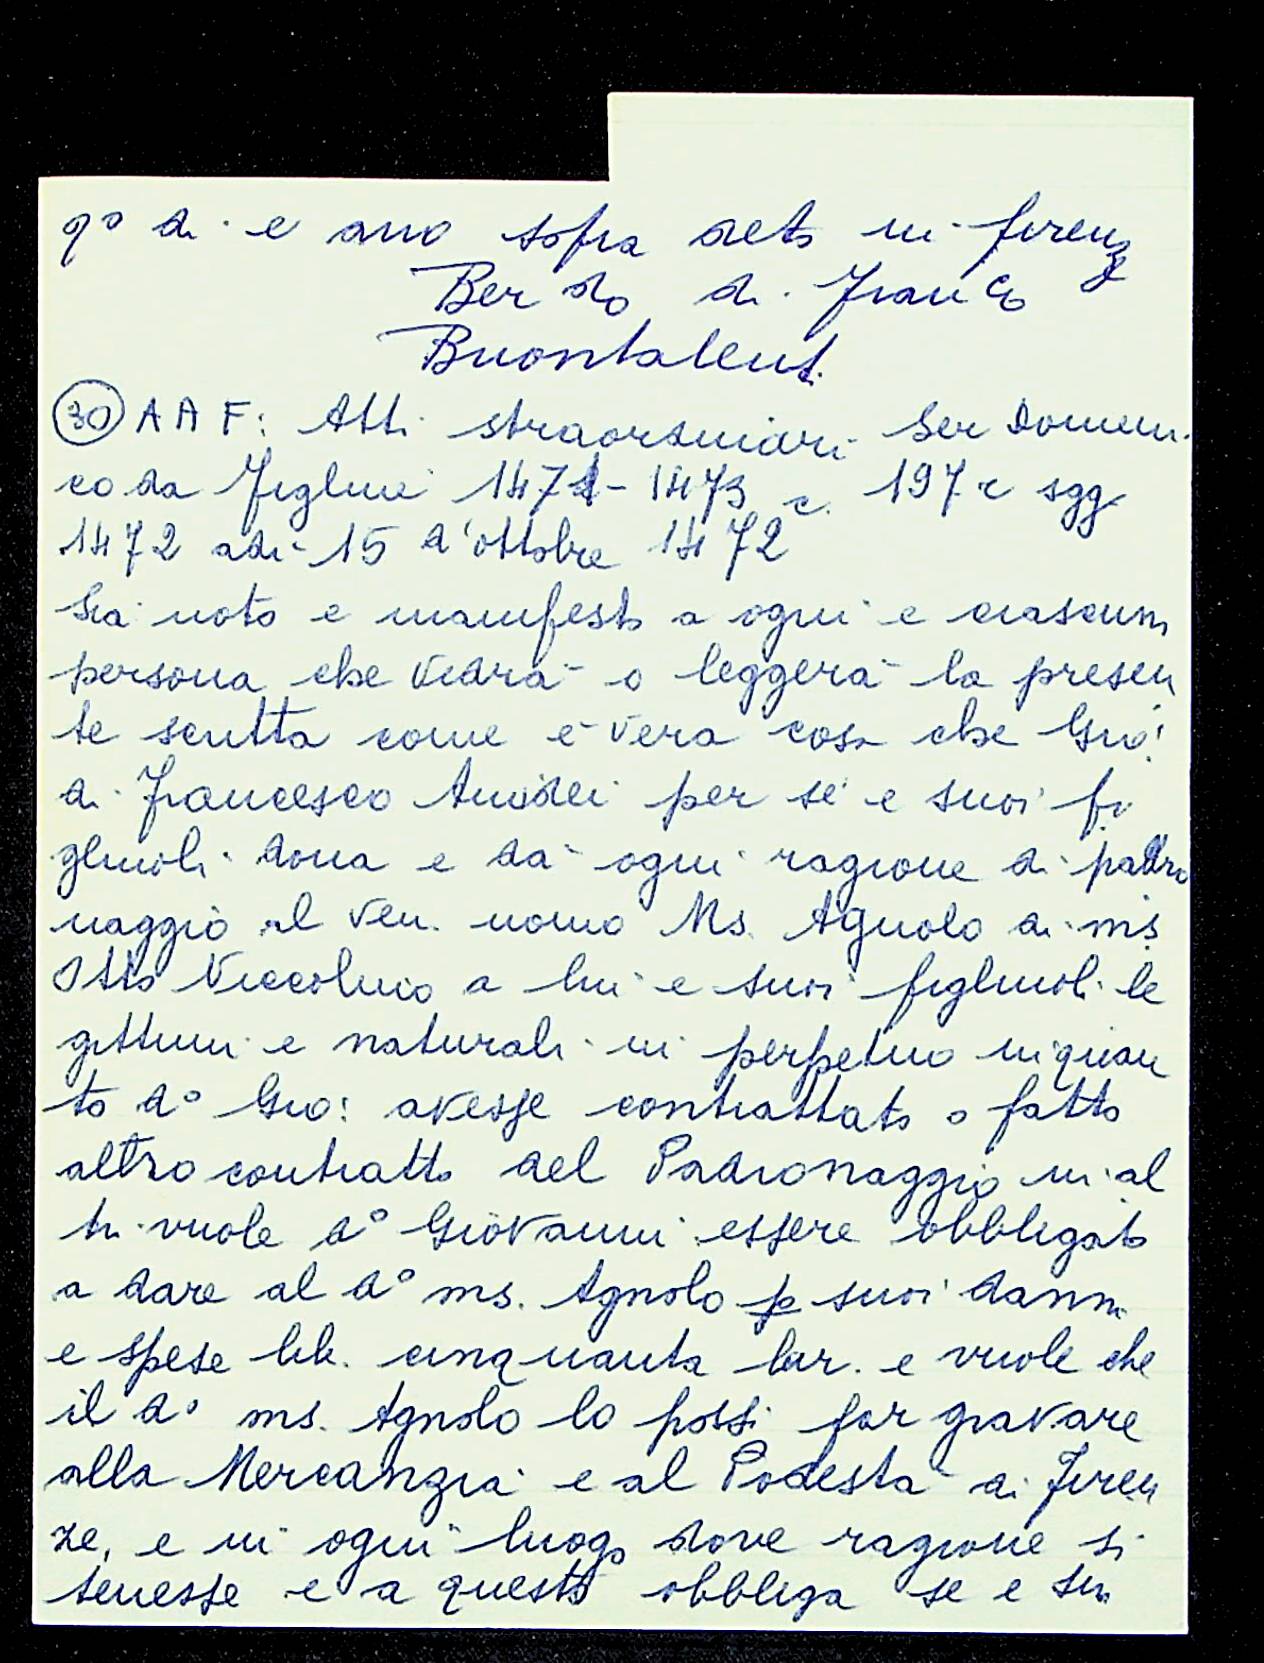 qº di e ano sopra deto in firenz
Ber do di Franco
Buontalenti
30 A A F: Atti straordinari Ser Domeni
co da Figline 1471-1473 c. 197r sgg
1472 adi 15 d'ottobre 1472
Sia noto e manifesto a ogni e ciascuna
persona che vedrà o leggerà la presen
te scritta come è vera cosa che Gio:
di Francesco Amidei per sé e suoi fi
gliuoli dona e dà ogni ragione di padro
naggio al ven. uomo Ms. Agnolo di ms
Otto Niccolini a lui e suoi figliuoli le
gittimi e naturali in perpetuo in quan
to dº Gio: avesse contrattato o fatto
altro contratto del Padronaggio in al
tri vuole dº Giovanni essere obbligato
a dare al dº ms. Agnolo p suoi danni
e spese lib. cinquanta lar. e vuole che
il dº ms. Agnolo lo possi far gravare
alla Mercanzia e al Podestà di Firen
ze, e in ogni luogo dove ragione si
tenesse e a questo obbliga se e sui